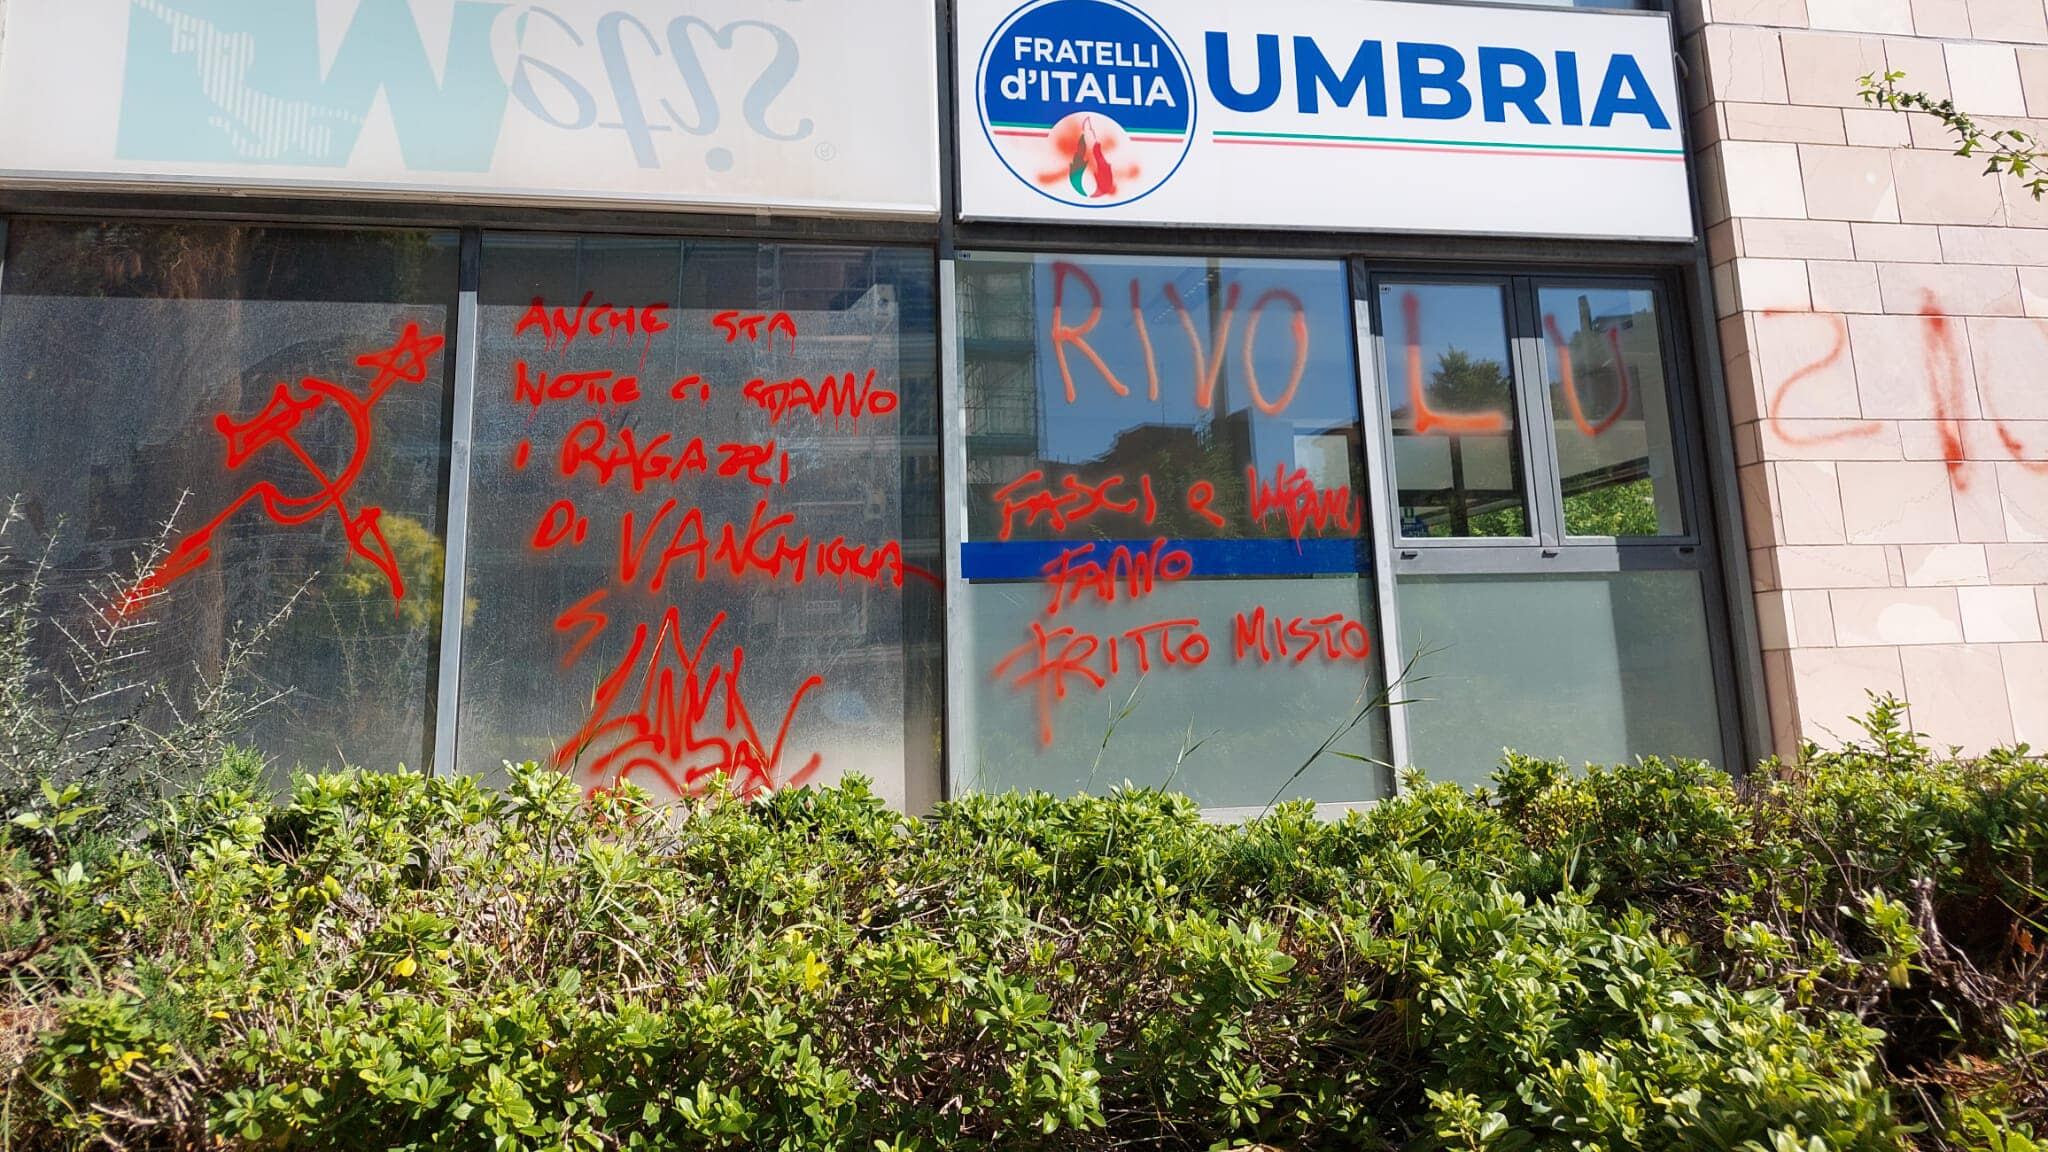 Metis
®
FRATELLI
d'ITALIA
UMBRIA
ANCHE STA
NOTTE CI STANNO
I RAGAZZI
DI VANCHIGLIA
RIVOLUSIO
FASCI e INFAMI
FANNO
FRITTO MISTO